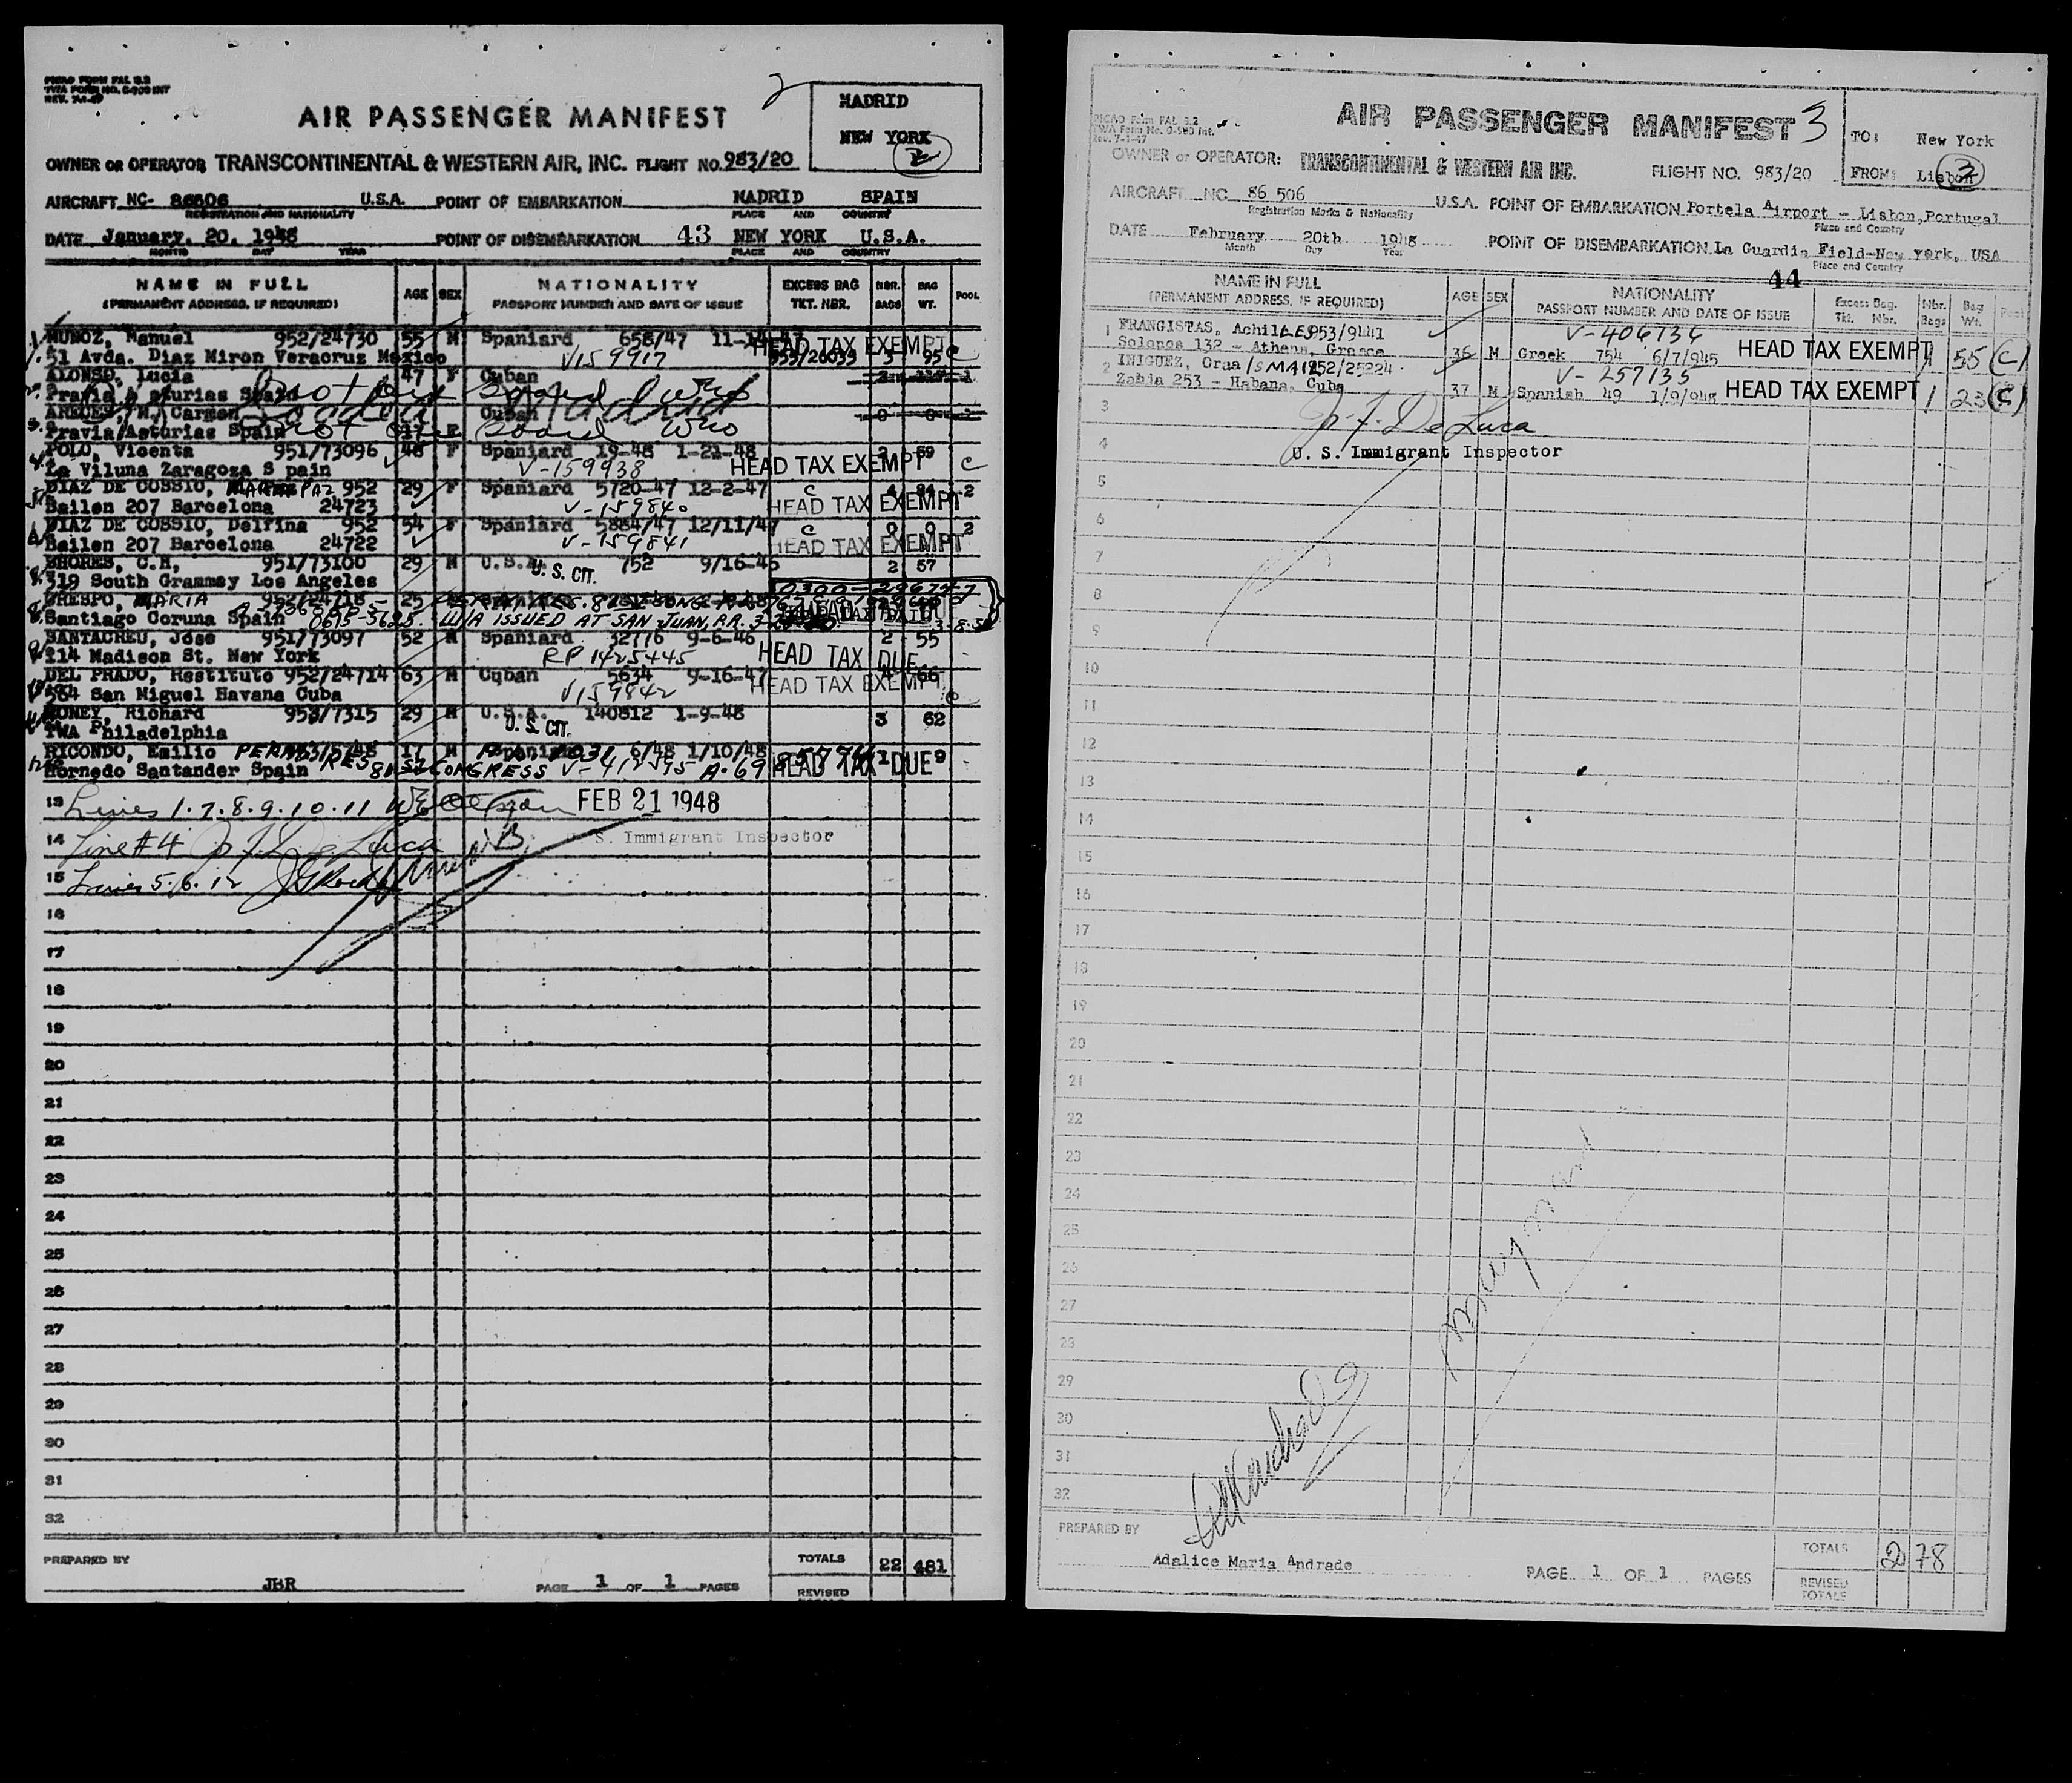 PICAO FORM FAL 3.2
TWA FORM NO. 0-900 INT
REV. 7-1-47
2
AIR PASSENGER MANIFEST
MADRID
NEW YORK
2
OWNER OR OPERATOR TRANSCONTINENTAL & WESTERN AIR, INC. FLIGHT NO. 983/20
AIRCRAFT NC- 86506 U.S.A. POINT OF EMBARKATION MADRID SPAIN
REGISTRATION AND NATIONALITY PLACE AND COUNTRY
DATE January. 20. 1948 POINT OF DISEMBARKATION 43 NEW YORK U.S.A.
MONTH DAY YEAR PLACE AND COUNTRY
NAME IN FULL AGE SEX NATIONALITY EXCESS BAG NBR. BAG POOL
(PERMANENT ADDRESS, IF REQUIRED) PASSPORT NUMBER AND DATE OF ISSUE TKT. NBR. BAGS WT.
MUNOZ, Manuel 952/24730 55 M Spaniard 658/47 HEAD TAX EXEMPT
51 Avda. Diaz Miron Veracruz Mexico V159917 3 95 C
ALONSO, Lucia 47 F Cuban
Pravia Asturias Spain not on board Madrid
ARECES, Carmen Cuban 0 0
Pravia/Asturias Spain not on board
POLO, Vicenta 951/73096 48 F Spaniard 19-48 1-21-48 59
La Viluna Zaragoza S pain V-159938 HEAD TAX EXEMPT C
DIAZ DE COSSIO, PAZ 952 29 F Spaniard 5720-47 12-2-47 C 2
Bailen 207 Barcelona 24723 V-159840 HEAD TAX EXEMPT
DIAZ DE COSSIO, Delfina 952 54 F Spaniard 5884/47 12/11/47 C 0 0 2
Bailen 207 Barcelona 24722 V-159841 HEAD TAX EXEMPT
SHORES, C.H, 951/73100 29 M U.S.A. 752 9/16-46 2 57
319 South Grammsy Los Angeles U.S. CIT.
CRESPO, MARIA 952/24718 25
Santiago Coruna Spain 0615-5625 W/A ISSUED AT SAN JUAN, P.R.
SANTACREU, Jose 951/73097 52 M Spaniard 32776 9-6-46 2 55
114 Madison St. New York RP 1425445 HEAD TAX DUE
DEL PRADO, Restituto 952/24714 63 M Cuban 5634 9-16-47 66
564 San Miguel Havana Cuba V159842 HEAD TAX EXEMPT C
MONEY, Richard 953/7315 29 M U.S.A. 140812 1-9-48 3 62
TWA Philadelphia U.S. CIT.
RICONDO, Emilio 17 M 6/48 1/10/48 1 9
Hornedo Santander Spain 81 ST CONGRESS HEAD TAX DUE
13 Lines 1.7.8.9.10.11 FEB 21 1948
14 Line #4 J. F. De Luca U. S. Immigrant Inspector
15 Lines 5.6.12
16
17
18
19
20
21
22
23
24
25
26
27
28
29
30
31
32
PREPARED BY JBR PAGE 1 OF 1 PAGES TOTALS 22 481
REVISED
PICAO Form FAL 3.2
TWA Form No. 0-900 Int.
Rev. 7-1-47
AIR PASSENGER MANIFEST 3
TO: New York
FROM: Lisbon 3
OWNER or OPERATOR: TRANSCONTINENTAL & WESTERN AIR INC. FLIGHT NO. 983/20
AIRCRAFT NC 86 506 U.S.A. POINT OF EMBARKATION Portela Airport - Lisbon, Portugal
Registration Marks & Nationality Place and Country
DATE February 20th 1948 POINT OF DISEMBARKATION La Guardia Field-New York, USA
Month Day Year Place and Country
44
NAME IN FULL AGE SEX NATIONALITY Excess Bag. Nbr. Bag Pool
(PERMANENT ADDRESS, IF REQUIRED) PASSPORT NUMBER AND DATE OF ISSUE Tkt. Nbr. Bags Wt.
1 FRANGISTAS, AchilLES 953/9441 V-406134
Solonos 132 - Athens, Greece 36 M Greek 754 6/7/945 HEAD TAX EXEMPT 1 55 (C)
2 INIGUEZ, Oraa ISMAI 952/25224 V-257135
Zabia 253 - Habana, Cuba 37 M Spanish 49 1/9/948 HEAD TAX EXEMPT 1 23 (C)
3 J. F. De Luca
4 U. S. Immigrant Inspector
5
6
7
8
9
10
11
12
13
14
15
16
17
18
19
20
21
22
23
24
25
26
27
28
29
30
31
32
PREPARED BY
Adalice Maria Andrade PAGE 1 OF 1 PAGES TOTALS 2 78
REVISED TOTALS